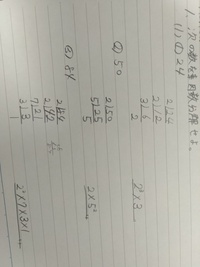 1. 次の数を素因数分解せよ。
(1) ① 24
2)24
2)12
3)6
2
2³×3
② 50
2)50
5)25
5
2×5²
③ 84
2)84
2)42
7)21
3)3
1
2²×7×3×1